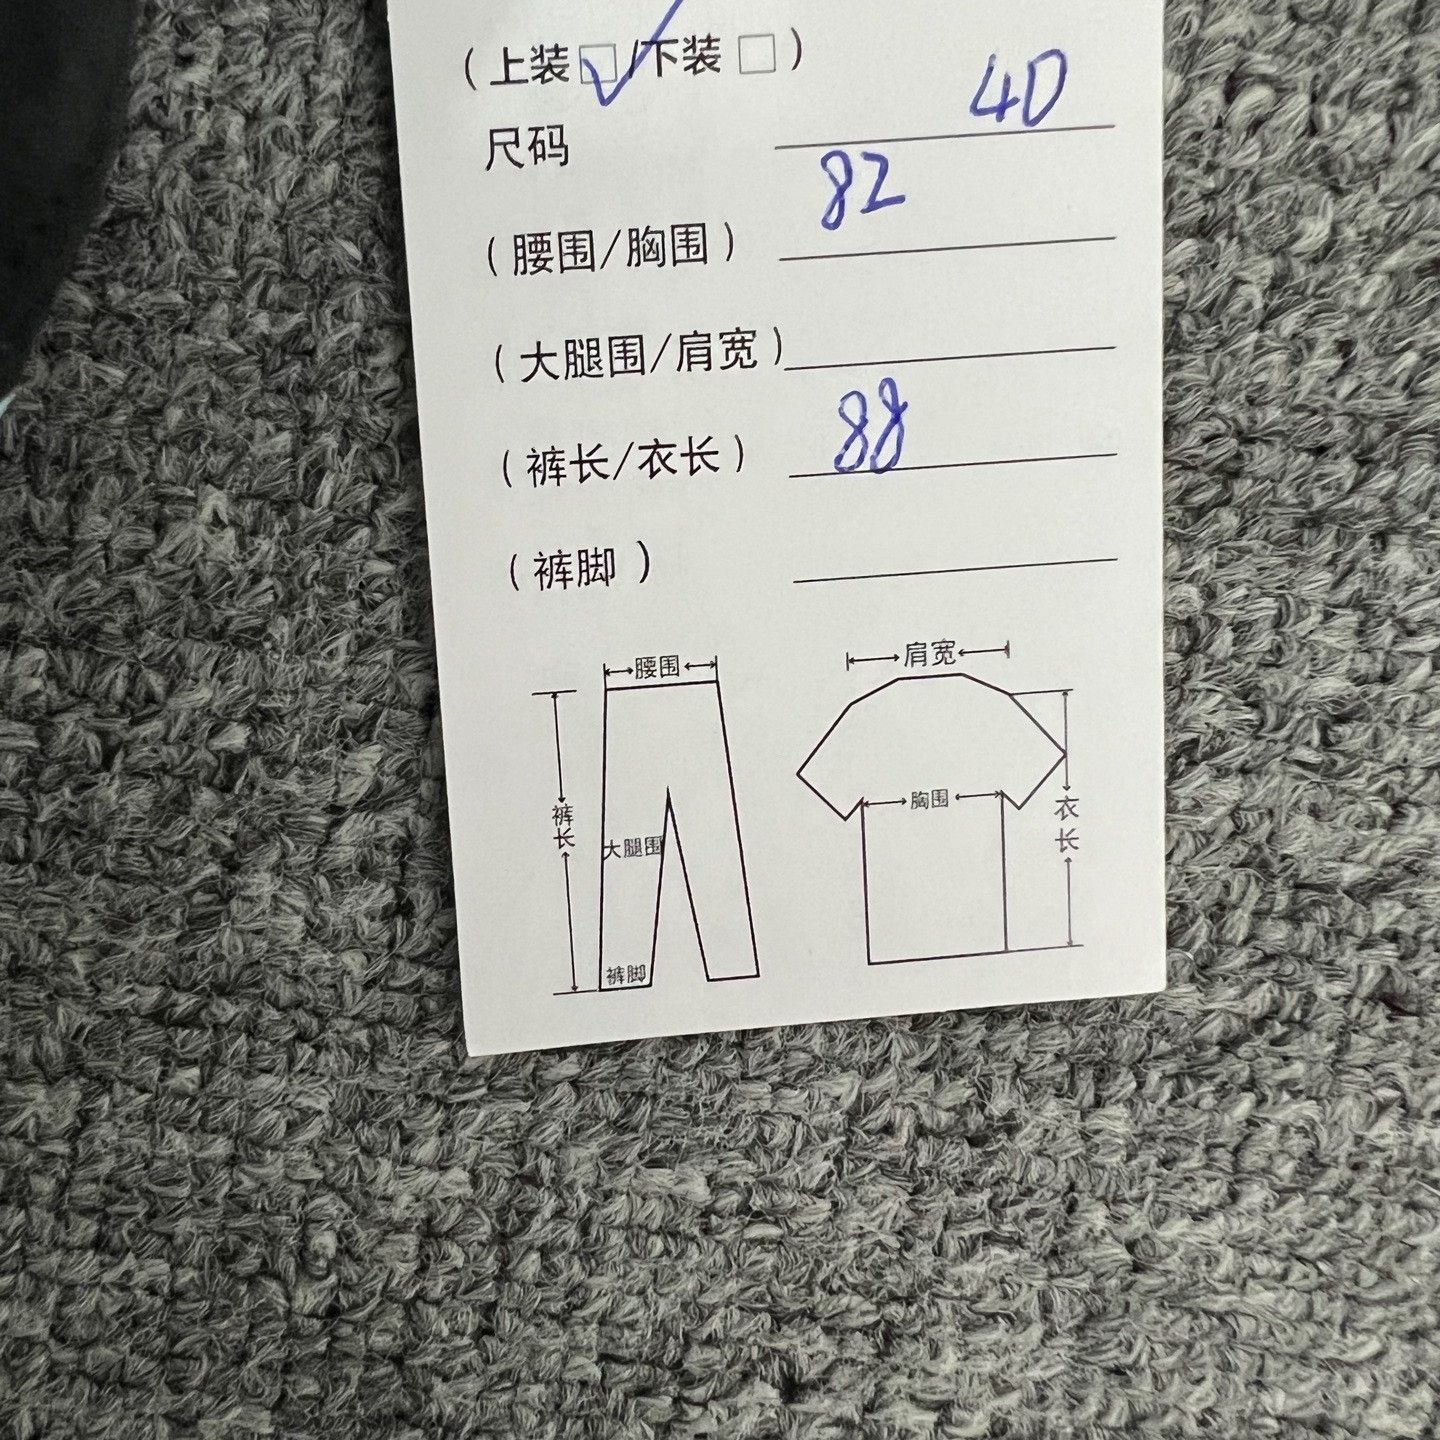 （上装☑/下装□）
尺码 40
（腰围/胸围） 82
（大腿围/肩宽）
（裤长/衣长） 88
（裤脚）
腰围
肩宽
裤长
大腿围
裤脚
胸围
衣长